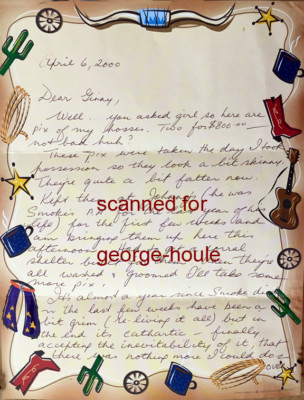 April 6, 2000
Dear Ginny,
Well.. you asked girl, so here are
pix of my hosses. Two for $800.00 —
not bad huh?
These pix were taken the day I took
possession so they look a bit skinny.
They're quite a bit fatter now.
Kept them at (he was
Smoke's the last year of his
life) for the first few weeks and
am bringing them up here this
afternoon. corral
shelter they're
all washed & groomed I'll take some
more pix.
It's almost a year since Smoke died
the last few weeks have been a
bit grim (re-living it all) but in
the end it's cathartic - finally
accepting the inevitability of it, that
there was nothing more I could do
over
scanned for
george-houle